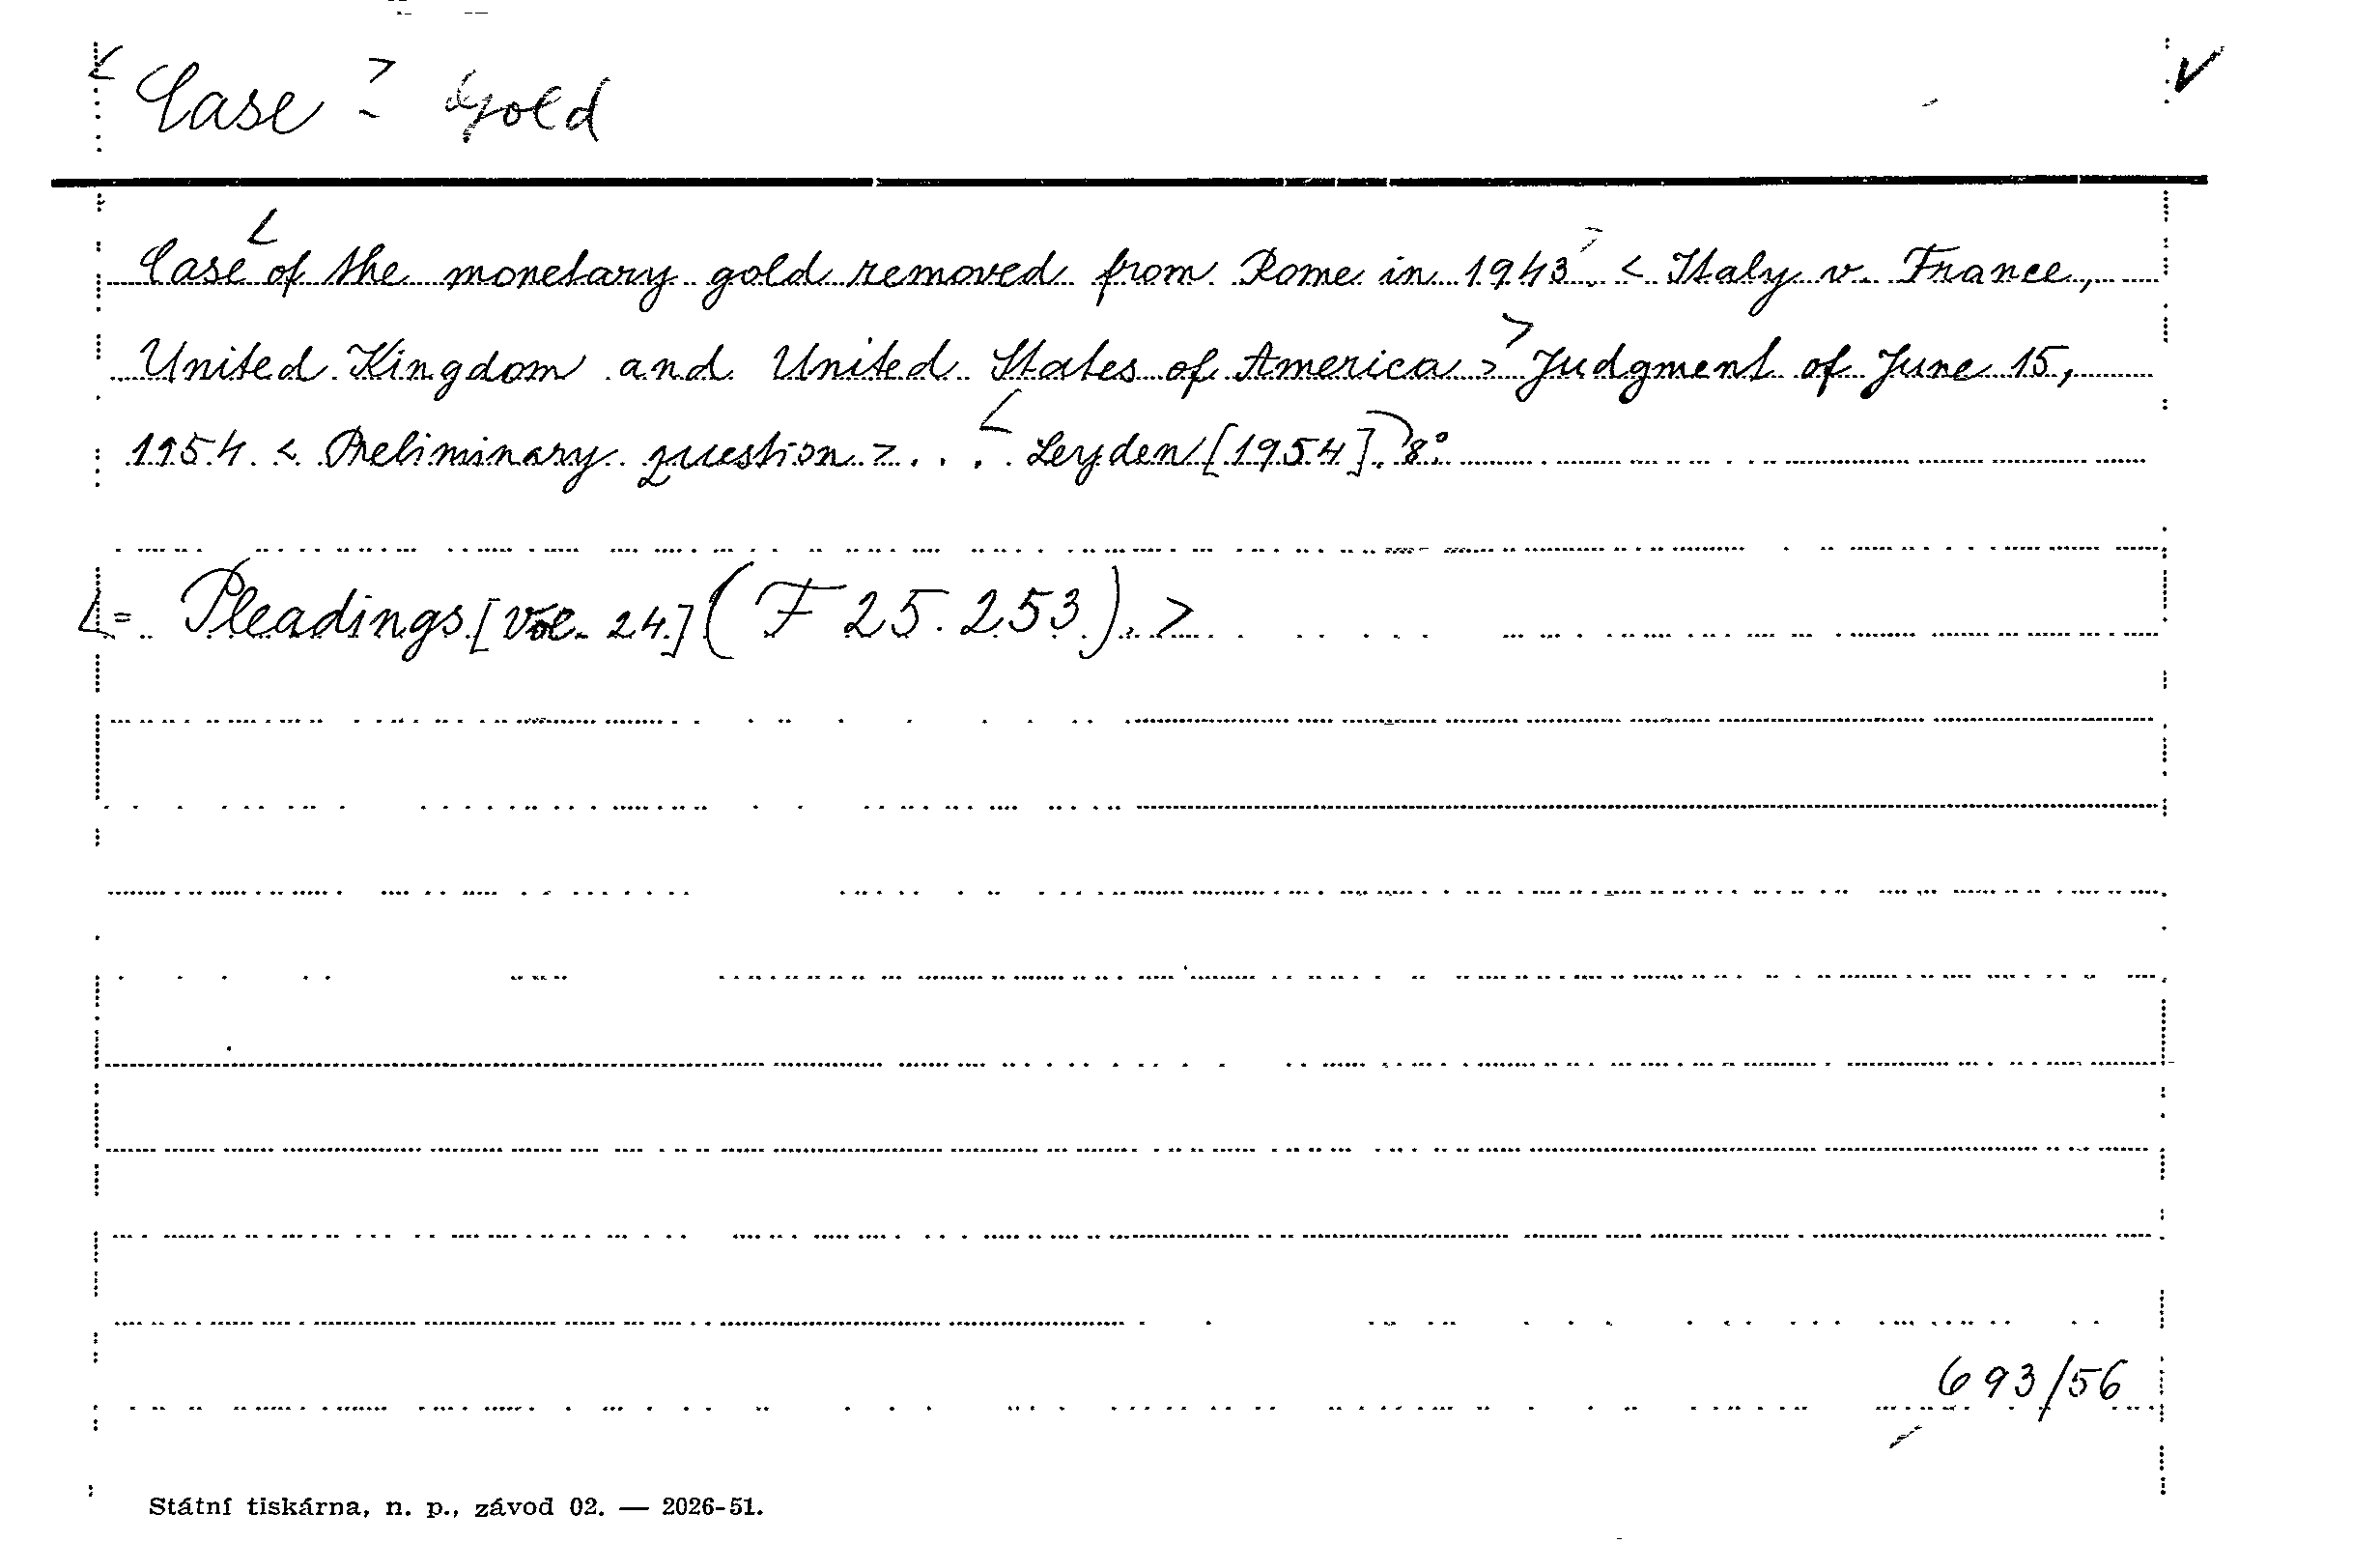 < Case > - Gold
Case < of the monetary gold removed from Rome in 1943 > . < Italy v. France,
United Kingdom and United States of America > > Judgment of June 15,
1954. < Preliminary question > . . . < Leyden [1954]. 8°
< = Pleadings [Vol. 24] (F 25.253). >
693/56
Státní tiskárna, n. p., závod 02. — 2026-51.